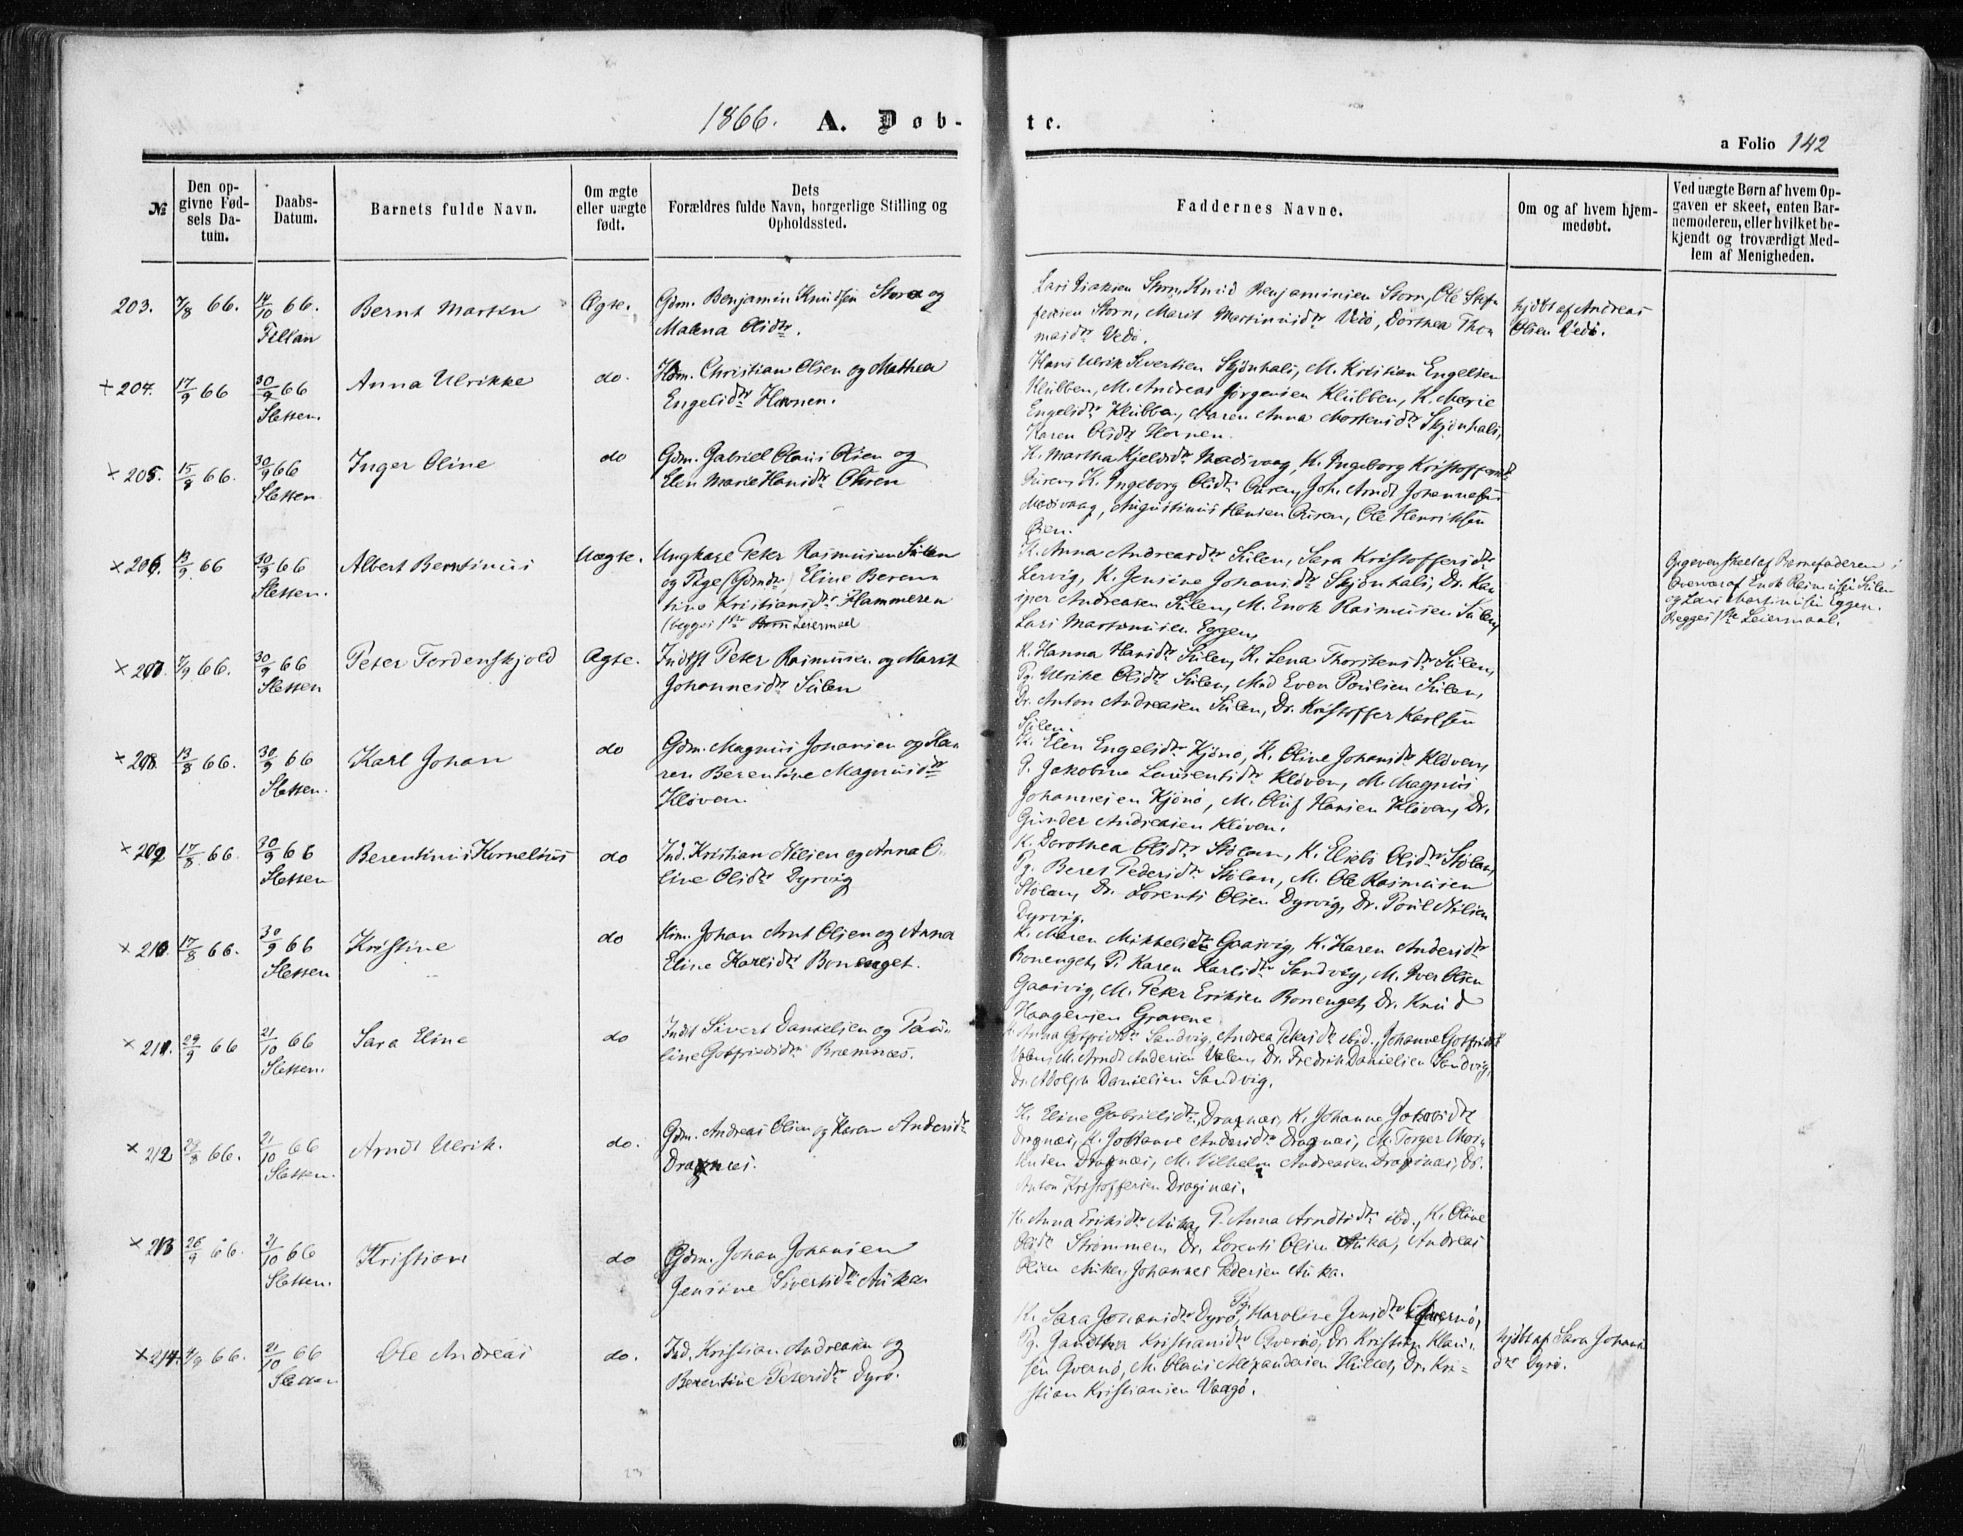 1866. A. Døb-
te.
a Folio 142
№
Den op-
givne Fød-
sels Da-
tum.
Daabs-
Datum.
Barnets fulde Navn.
Om ægte
eller uægte
født.
Dets
Forældres fulde Navn, borgerlige Stilling og
Opholdssted.
Faddernes Navne.
Om og af hvem hjem-
medøbt.
Ved uægte Børn af hvem Op-
gaven er skeet, enten Bar-
nemoderen, eller hvilket be-
kjendt og troværdigt Med-
lem af Menigheden.
203. 7/8 66. 14/10 66. Fillan
Bernt Morten
Ægte.
Gdm. Benjamin Knudsen Storø og
Malena Olsdtr.
Lars Isaksen Storø, Knud Benjaminsen Storø, Ole Stef
fensen Storø, Marit Martinusdtr Vedø, Dorthea Tho
masdtr Vedø.
hjdbt af Andreas
Olsen Vedø.
× 204. 17/9 66 30/9 66 Sletten.
Anna Ulrikke
do.
Christian Olsen og Mathea
Engelsdtr Havnen.
Hans Ulrik Sivertsen Skjønhals, M. Kristian Engelsen
Klubben, M. Andreas Jørgensen Klubben, K. Marie
Engelsdtr Klubben, Maren Anna Mortensdtr Skjønhals,
Karen Olsdtr Havnen.
× 205. 15/8 66. 30/9 66 Sletten.
Inger Oline
do
Gdm. Gabriel Olaus Olsen og
Elen Marie Hansdtr
K. Martha Kjelsdtr Madsvaag, K. Ingeborg Kristoffersdtr
K. Ingeborg Olsdtr Joh. Arndt Johannesen
Madsvaag, Augustinus Hansen Ole Henriksen
Øien.
× 206. 13/9 66 30/9 66 Sletten.
Albert Berntinus
Uægte.
Ungkarl Peter Rasmusen Sulen
og Pige (Gdmdtr) Eline Beren
tine Kristiansdtr Hammeren
(begges 1ste Leiermaal
K. Anna Andreasdtr Sulen, Sara Kristoffersdtr
Lervig, K. Jensine Johansdtr Skjønhals, Dr. Kas
per Andreasen Sulen, M. Enok Rasmusen Sulen,
Lars Martinusen Eggen,
Opgaven skeet af Barnefaderen i
Overvær af Enok Rasmusen Sulen
og Lars Martinusen Eggen.
Begges 1ste Leiermaal.
× 207. 7/9 66. 30/9 66 Sletten
Peter Tordenskjold
Ægte.
Indst Peter Rasmusen og Marit
Johannesdtr Sulen
K. Hanna Hansdtr Sulen, K. Lena Thorstensdtr Sulen,
Pg. Ulrike Olsdtr Sulen, Even Poulsen Sulen,
Dr. Anton Andreasen Sulen, Dr. Kristoffer Karlsen
Sulen.
× 208. 13/8 66. 30/9 66 Sletten.
Karl Johan
do
Gdm. Magnus Johansen og Ka
ren Berentine Magnusdtr
Kløven.
K. Elen Engelsdtr Kjønø, K. Oline Johansdtr Kløven,
P. Jakobine Laurentsdtr Kløven, M. Magnus
Johannesen Kjønø, M. Oluf Hansen Kløven, Dr.
Gunder Andreasen Kløven.
× 209 17/8 66. 30/9 66 Sletten
Berentinus Kornelius
do
Ind. Kristian Nilsen og Anna O
line Olsdtr Dyrvig
K. Dorothea Olsdtr Stølan, K. Elsebe Olsdtr Stølan,
Pg. Beret Pedersdtr Stølan, M. Ole Rasmusen
Stølan, Dr. Lorents Olsen Dyrvig, Dr. Poul Nilsen
Dyrvig.
× 210 17/8 66. 30/9 66 Sletten
Kristine
do
Johan Arnt Olsen og Anna
Eline Karlsdtr Bonenget.
K. Maren Mikkelsdtr Gaasvig, K. Karen Andersdtr
Bonenget, P. Karen Karlsdtr Sandvig, M. Iver Olsen
Gaasvig, M. Peter Eriksen Bonenget, Dr. Knud
Haagensen Gravene
× 211. 29/9 66 21/10 66 Sletten.
Sara Eline
do
Indst Sivert Danielsen og Pau
line Gotfriedsdtr Bremnæs.
Anna Gotfridsdtr Sandvig, Andrea Petersdtr ibid., Johanne Gotfridsdtr
Valen, M. Arndt Andersen Valen, Dr. Fredrik Danielsen Sandvig,
Dr. Adolph Danielsen Sandvig.
× 212 66. 21/10 66 Sletten.
Arndt Ulrik.
do.
Gdm. Andreas Olsen og Karen Andersdtr
Dragsnæs.
K. Eline Gabrielsdtr, Dragnæs, K. Johanne Jakobsdtr
Dragnæs, K. Johanne Andersdtr Dragnæs, M. Torger
Dragnæs, M. Vilhelm Andreasen Dragsnæs, Dr.
Anton Kristoffersen Dragsnæs.
× 213 26/9 66. 21/10 66 Sletten.
Kristian
do
Gdm. Johan Johansen
Jensine Sivertsdtr Auka
K. Anna Eriksdtr Auka, P. Anna Arndtsdtr ibd., K. Oline
Olsdtr Strømmen, Dr. Lorents Olsen Auka, Andreas
Olsen Auka, Johannes Pedersen Auka.
× 214. 66. 21/10 66 Sletten
Ole Andreas
do.
Ind. Kristian Andreasen og
Berentine Petersdtr Dyrø.
K. Sara Johansdtr Dyrø, Pg. Karoline Jensdtr Qvernø,
Pg. Kristiansdtr Qvernø, Dr. Kristian Klau
sen Qvernø, M. Olaus Alexandersen Dr. Kri-
stian Kristiansen Vaagø.
hjdbt af Sara Johans
dtr Dyrø.